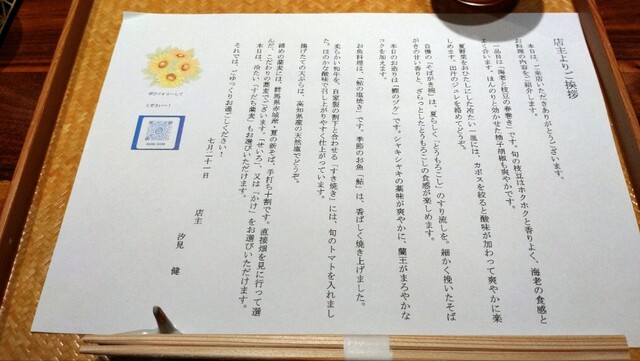 店主よりご挨拶
本日は、ご来店いただきありがとうございます。
お料理の内容をご紹介します。
一品目は「海老と枝豆の春巻き」です。旬の枝豆はホクホクと香りよく、海老の食感と
よく合います。ほんのりと効かせた柚子胡椒も爽やかです。
夏野菜をおひたしにした冷たい一皿には、カボスを絞ると酸味が加わって爽やかに楽
しめます。出汁のジュレを絡めてどうぞ。
自慢の「そばがき椀」は、夏らしく「とうもろこし」のすり流しを。細かく挽いたそば
がきの甘い香りと、ざらっとしたとうもろこしの食感が楽しめます。
本日のお造りは「鰹のヅケ」です。シャキシャキの薬味が爽やかに、蘭王がまろやかな
コクを加えます。
お魚料理は、「鮎の塩焼き」です。季節のお魚「鮎」は、香ばしく焼き上げました。
柔らかい和牛を、自家製の割下と合わせる「すき焼き」には、旬のトマトを入れまし
た。ほのかな酸味で召し上がりやすく仕上がっています。
揚げたての天ぷらは、高知県産の天然塩でどうぞ。
締めの蕎麦には、群馬県赤城産・夏の新そば、手打ち十割です。直接畑を見に行って選
んだ、こだわりの蕎麦でございます。「せいろ」、又は「かけ」をお選びいただけます。
本日は、冷たい「すだち蕎麦」もお選びいただけます。
それでは、ごゆっくりお過ごしください！
七月二十一日
店主
汐見 健